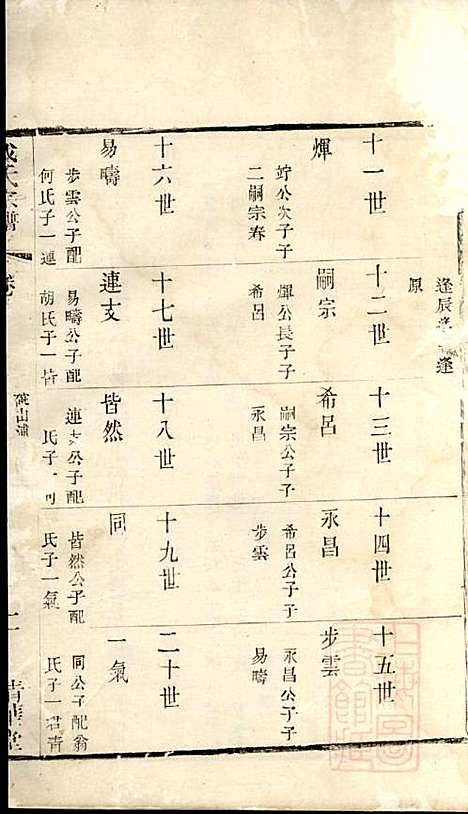 逢
原
十一世
煇
竚公次子子
二嗣宗寿
十二世
嗣宗
煇公長子子
希呂
十三世
希呂
嗣宗公子子
永昌
十四世
永昌
希呂公子子
步雲
十五世
步雲
永昌公子子
易疇
十六世
易疇
步雲公子配
何氏子一連
十七世
連支
易疇公子配
胡氏子一皆
十八世
皆然
連支公子配
氏子一同
十九世
同
皆然公子配
氏子一氣
二十世
一氣
同公子配翁
氏子一君青
氏宗譜